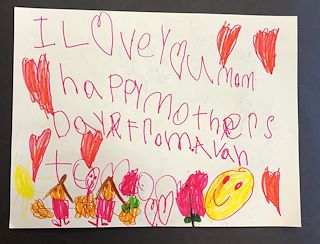 I LOveYou mom
happymothers
Day FromAvah
to mom